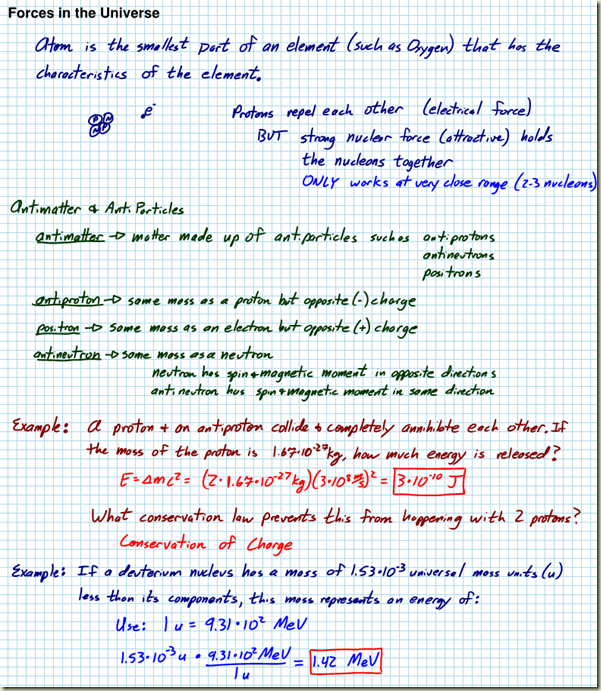 Forces in the Universe
Atom is the smallest part of an element (such as Oxygen) that has the
characteristics of the element.
P N
N P
e⁻
Protons repel each other (electrical force)
BUT strong nuclear force (attractive) holds
the nucleons together
ONLY works at very close range (2-3 nucleons)
Antimatter & Anti Particles
antimatter → matter made up of antiparticles such as antiprotons
antineutrons
positrons
antiproton → same mass as a proton but opposite (-) charge
positron → same mass as an electron but opposite (+) charge
antineutron → same mass as a neutron
neutron has spin + magnetic moment in opposite directions
antineutron has spin + magnetic moment in same direction
Example: A proton + an antiproton collide & completely annihilate each other. If
the mass of the proton is 1.67·10⁻²⁷kg, how much energy is released?
E = Δmc² = (2·1.67·10⁻²⁷kg)(3·10⁸ m/s)² = 3·10⁻¹⁰ J
What conservation law prevents this from happening with 2 protons?
Conservation of Charge
Example: If a deuterium nucleus has a mass of 1.53·10⁻³ universal mass units (u)
less than its components, this mass represents an energy of:
Use: 1 u = 9.31·10² MeV
1.53·10⁻³ u · 9.31·10² MeV / 1 u = 1.42 MeV